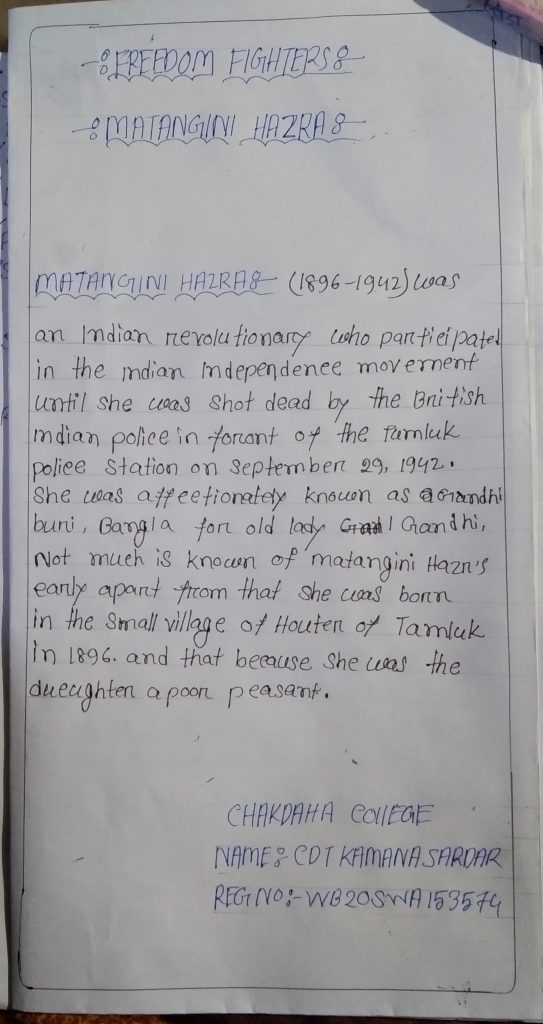 -: FREEDOM FIGHTERS :-
-: MATANGINI HAZRA :-
MATANGINI HAZRA :- (1896-1942) was
an Indian revolutionary who participated
in the Indian Independence movement
until she was shot dead by the British
Indian police in foront of the Tamluk
police Station on September 29, 1942.
She was affectionately known as Gandhi
buri, Bangla for old lady Gandhi,
Not much is known of matangini Hazr's
early apart from that she was born
in the small village of Houter of Tamluk
in 1896. and that because she was the
dueughter a poor peasant.
CHAKDAHA COllEGE
NAME:- CDT KAMANA SARDAR
REG NO:- WB20SWA153574